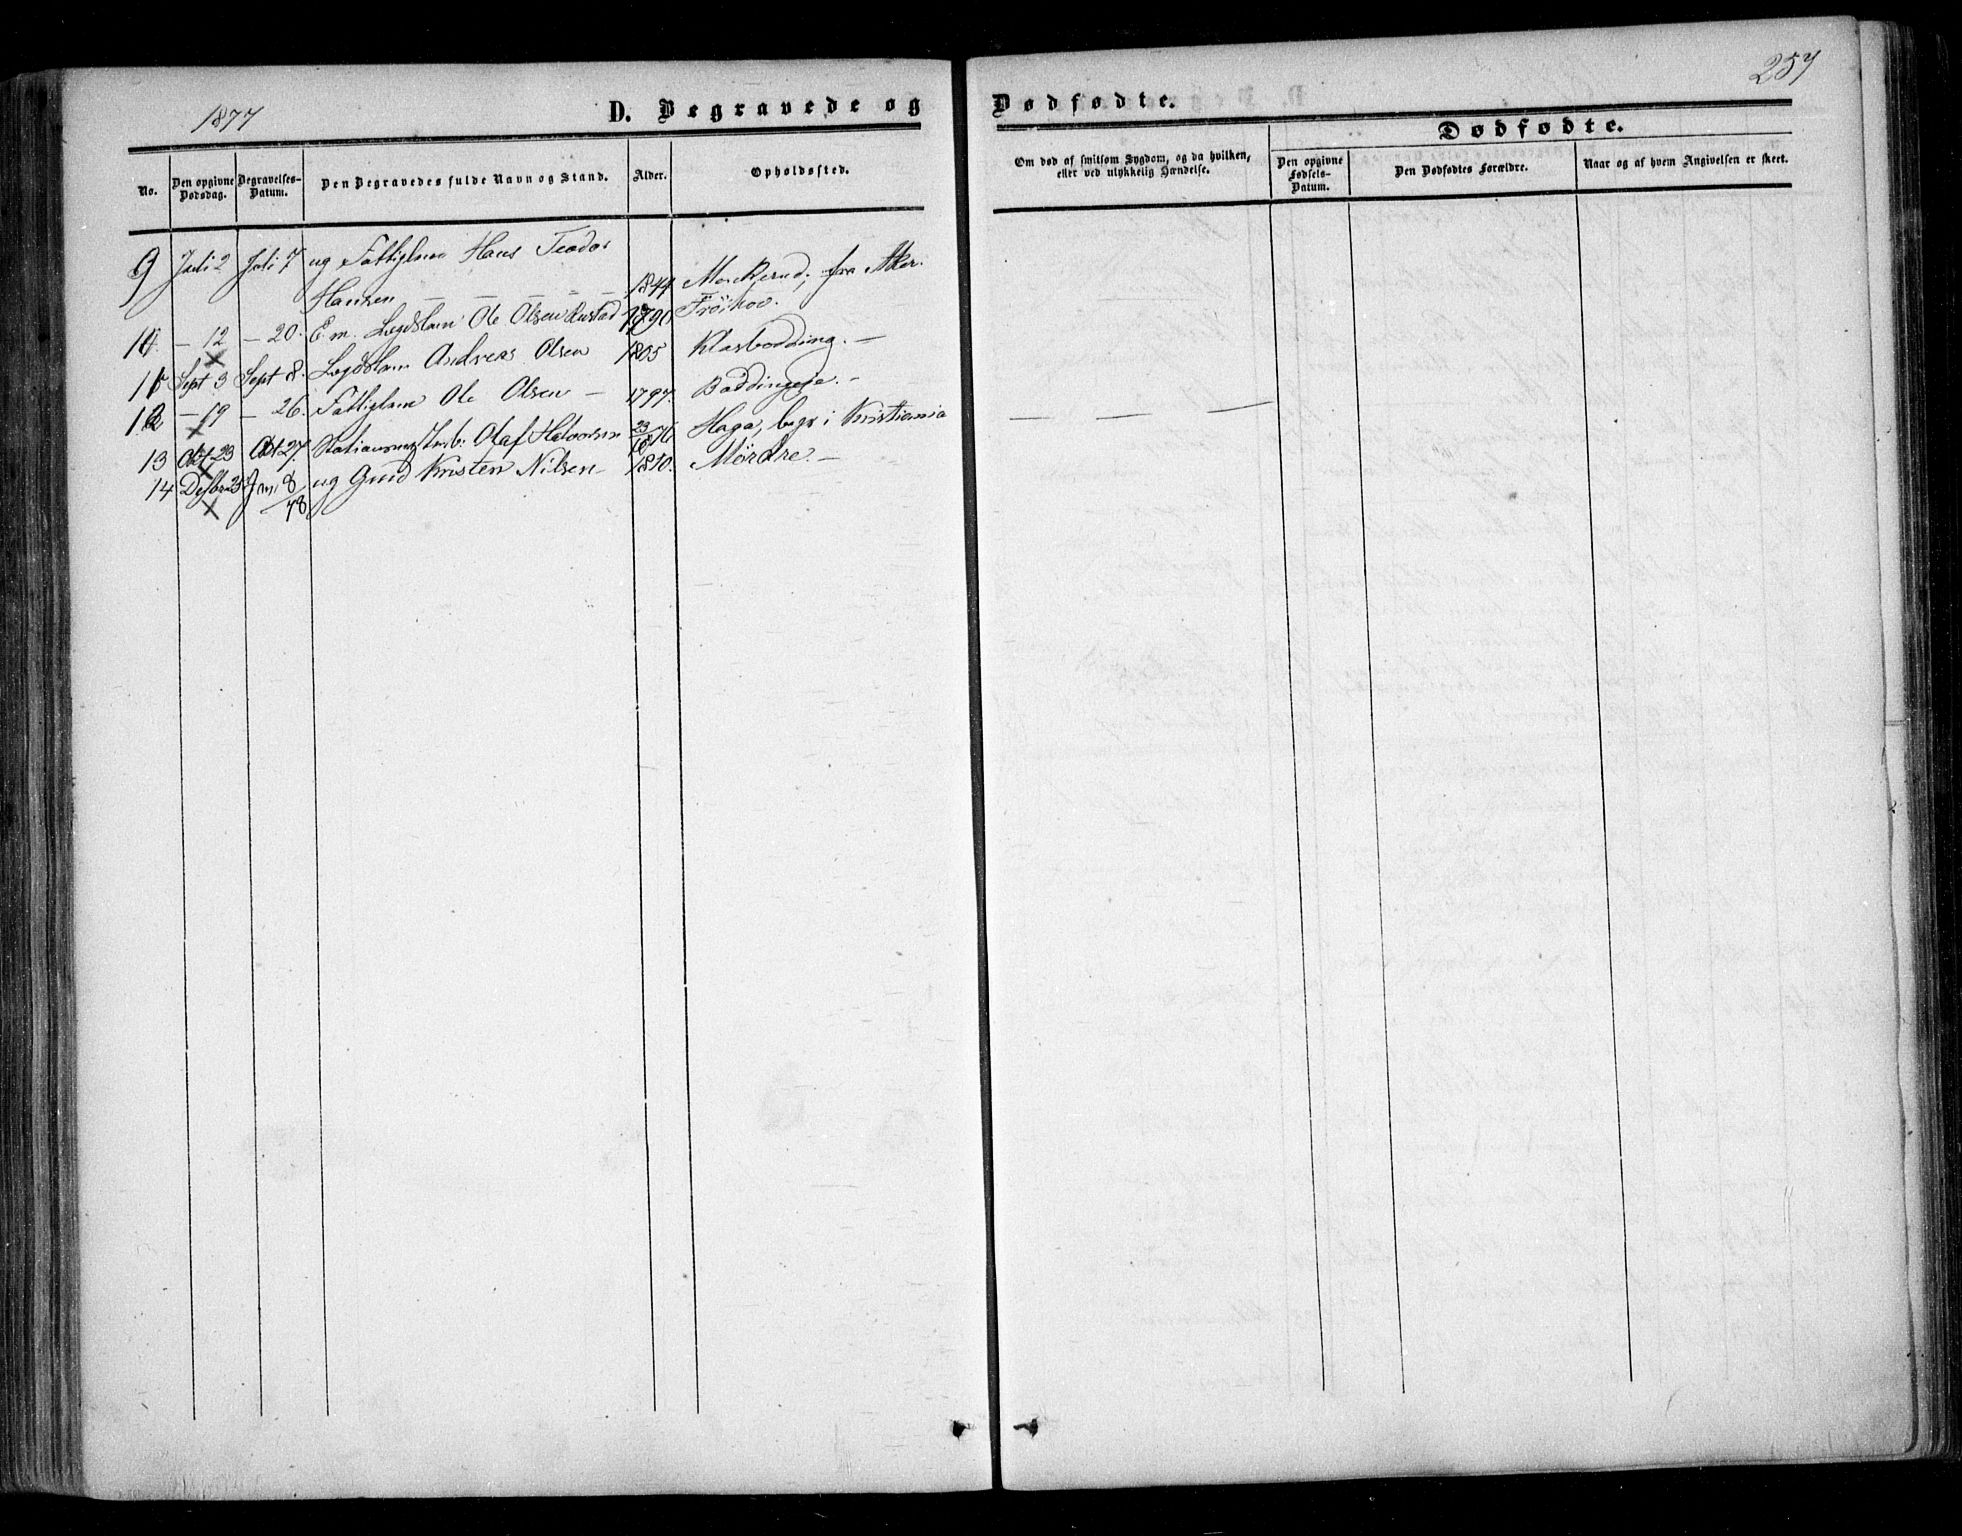 1877
257
D. Begravede og Dødfødte.
Dødfødte.
No. Den opgivne Dødsdag. Begravelses-Datum. Den Begravedes fulde Navn og Stand. Alder. Opholdssted. Om død af smitsom Sygdom, og da hvilken, eller ved ulykkelig Hændelse. Den opgivne Fødsels-Datum. Den Dødfødtes Forældre. Naar og af hvem Angivelsen er skeet.
9 Juli 2 Juli 7 ug Fattiglem Hans Teodor
Hansen — — — — — 1844 fra Aker.
10 — 12 — 20. E.m. Lægdslem Ole Olsen Rustad 1790 Fröihov.
11 Sept 3 Sept 8. Lægdslem Andreas Olsen 1805 Klasbodding. —
12 — 19 — 26. Fattiglem Ole Olsen — 1797. Boddingeie. —
13 Okt 23 Okt 27. Olaf Halvorsen 23/10 1876 Haga, begr i Kristiania
14 Desbr 25 Jan 8/78 ug Gmd Kristen Nilsen — 1810. Mördre. —